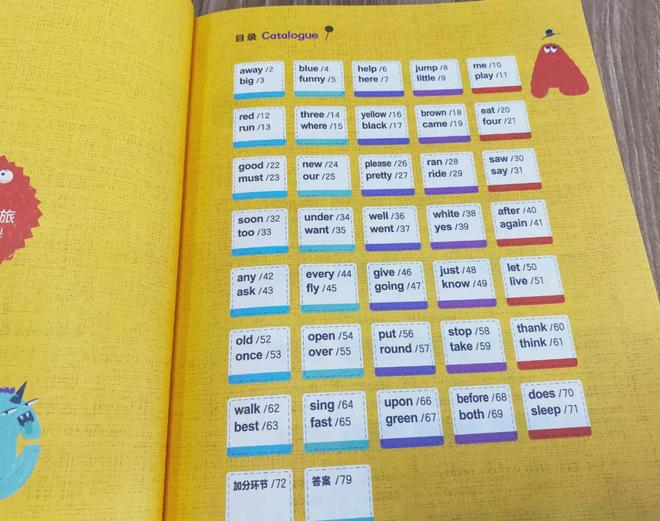 目录 Catalogue
away /2 blue /4 help /6 jump /8 me /10
big /3 funny /5 here /7 little /9 play /11
red /12 three /14 yellow /16 brown /18 eat /20
run /13 where /15 black /17 came /19 four /21
good /22 new /24 please /26 ran /28 saw /30
must /23 our /25 pretty /27 ride /29 say /31
soon /32 under /34 well /36 white /38 after /40
too /33 want /35 went /37 yes /39 again /41
any /42 every /44 give /46 just /48 let /50
ask /43 fly /45 going /47 know /49 live /51
old /52 open /54 put /56 stop /58 thank /60
once /53 over /55 round /57 take /59 think /61
walk /62 sing /64 upon /66 before /68 does /70
best /63 fast /65 green /67 both /69 sleep /71
加分环节 /72 答案 /79
旅